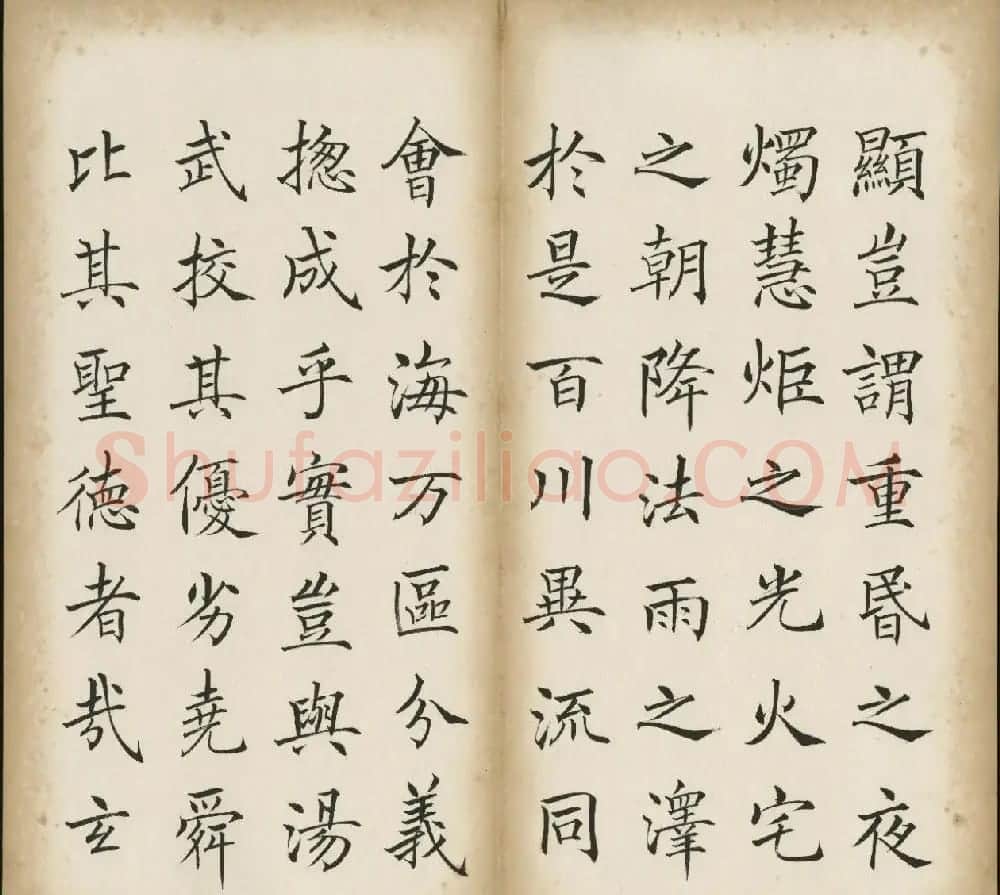 顯豈謂重昬之夜
燭慧炬之光火宅
之朝降法雨之澤
於是百川異流同
會於海万區分義
揔成乎實豈與湯
武挍其優劣堯舜
比其聖德者哉玄
Shufaziliao.COM